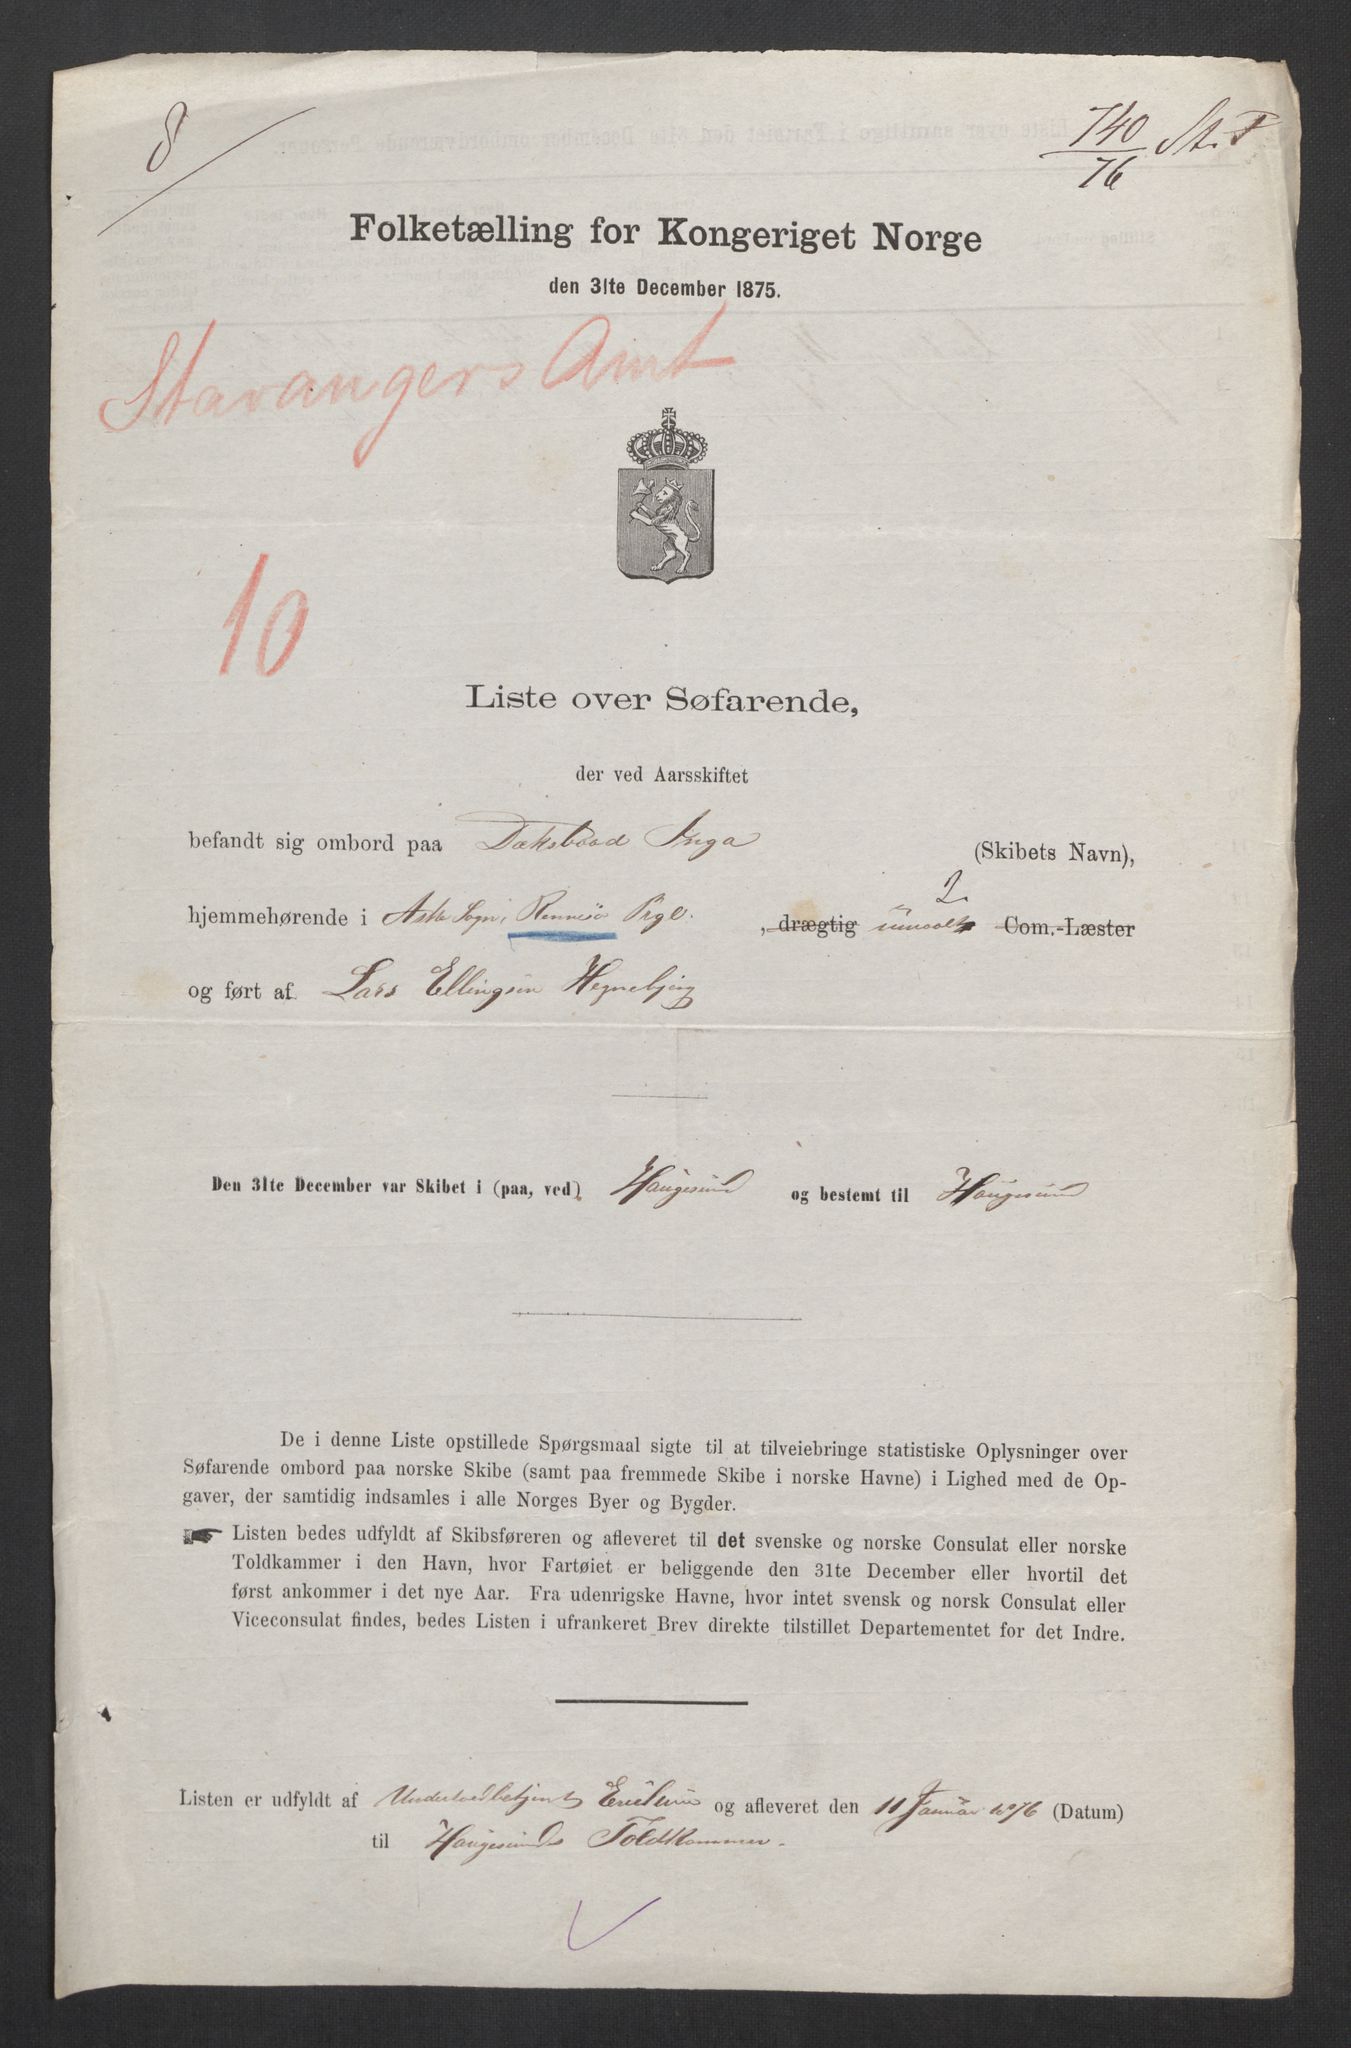 8
740
76 St. T
Folketælling for Kongeriget Norge
den 31te December 1875.
Stavangers Amt
10
Liste over Søfarende,
der ved Aarsskiftet
befandt sig ombord paa Dæksbaad Inga (Skibets Navn),
2
hjemmehørende i Aske Sogn, Rennesø Prgl. , drægtig umaalt Com.-Læster
og ført af Lars Ellingsen Hegnebjerg
Den 31te December var Skibet i (paa, ved) Haugesund og bestemt til Haugesund
De i denne Liste opstillede Spørgsmaal sigte til at tilveiebringe statistiske Oplysninger over
Søfarende ombord paa norske Skibe (samt paa fremmede Skibe i norske Havne) i Lighed med de Op-
gaver, der samtidig indsamles i alle Norges Byer og Bygder.
Listen bedes udfyldt af Skibsføreren og afleveret til det svenske og norske Consulat eller norske
Toldkammer i den Havn, hvor Fartøiet er beliggende den 31te December eller hvortil det
først ankommer i det nye Aar. Fra udenrigske Havne, hvor intet svensk og norsk Consulat eller
Viceconsulat findes, bedes Listen i ufrankeret Brev direkte tilstillet Departementet for det Indre.
Listen er udfyldt af Undertoldbetjent og afleveret den 11 Januar 1876 (Datum)
til Haugesunds Toldkammer.